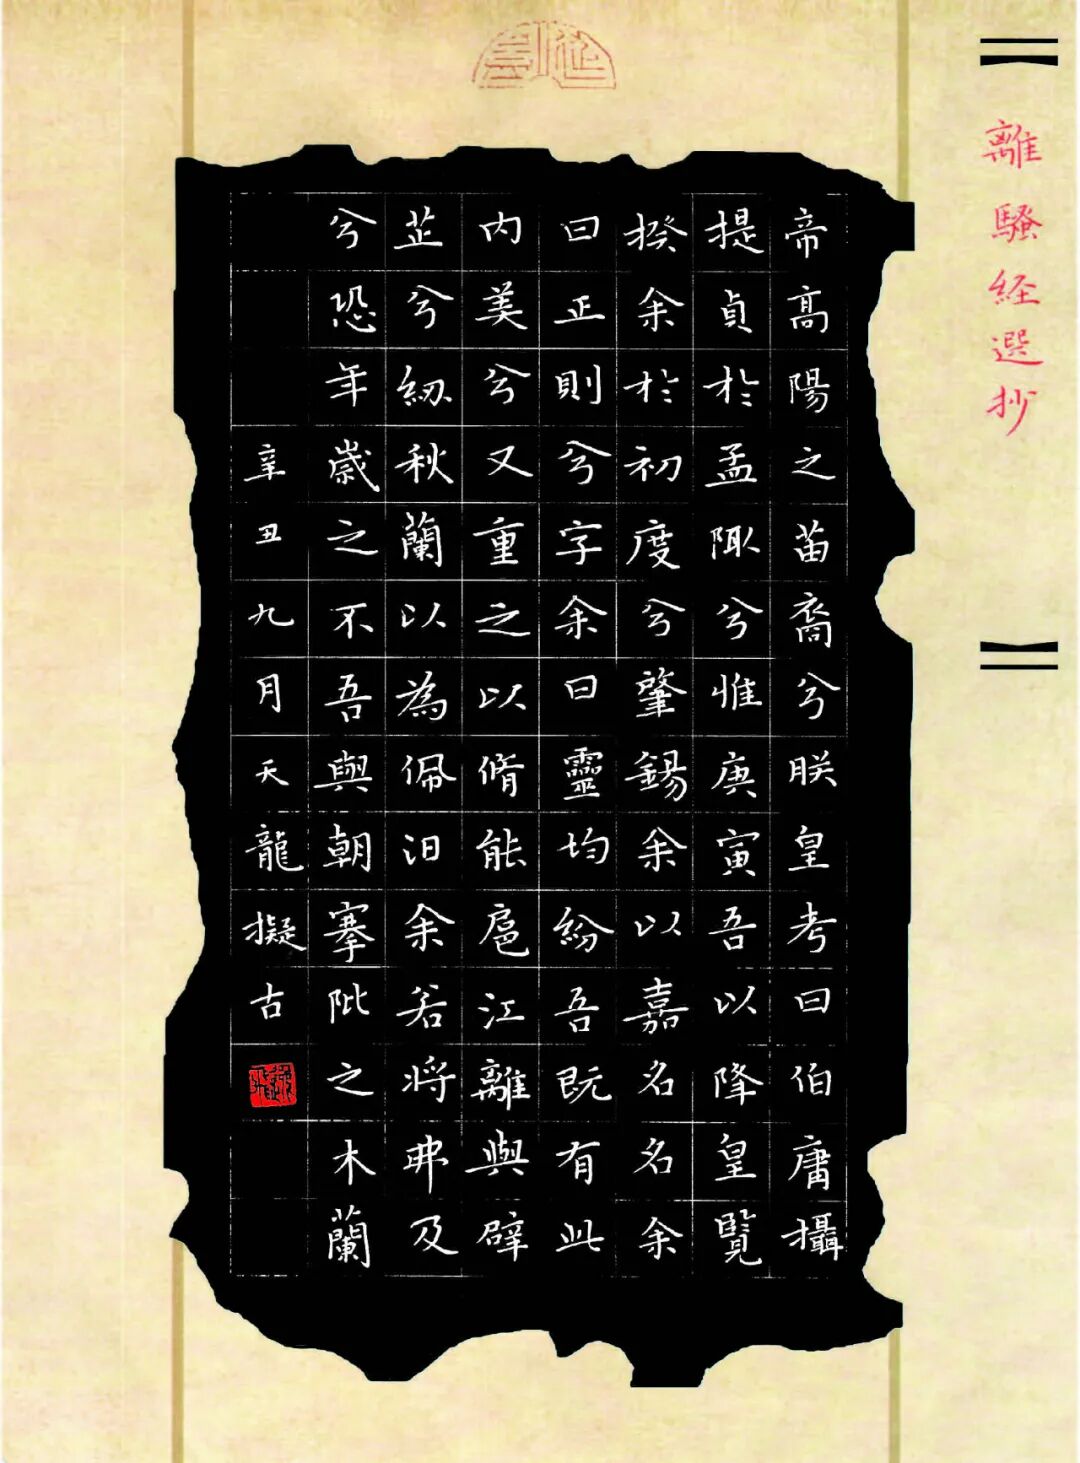 離騷経選抄
帝高陽之苗裔兮朕皇考曰伯庸攝
提貞於孟陬兮惟庚寅吾以降皇覽
揆余於初度兮肇錫余以嘉名名余
曰正則兮字余曰靈均紛吾既有此
内美兮又重之以脩能扈江離與辟
芷兮紉秋蘭以為佩汨余若将弗及
兮恐年歲之不吾與朝搴阰之木蘭
辛丑九月天龍擬古